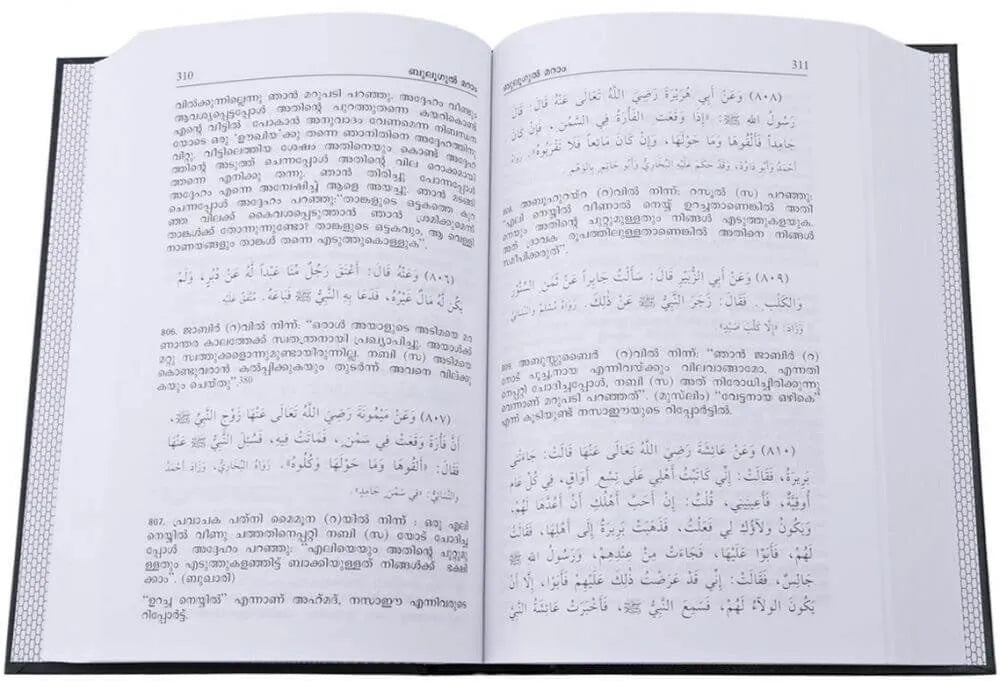 310
ബുലൂഗുൽ മറാം
വിൽക്കുന്നില്ലെന്നു ഞാൻ മറുപടി പറഞ്ഞു. അദ്ദേഹം വീണ്ടും
ആവശ്യപ്പെട്ടപ്പോൾ അതിന്റെ പുറത്തുതന്നെ കയറികൊണ്ട്
എന്റെ വീട്ടിൽ പോകാൻ അനുവാദം വേണമെന്ന നിബന്ധന
യോടെ ഒരു 'ഊഖിയ'ക്കു തന്നെ ഞാനിതിനെ അദ്ദേഹത്തിനു
വിറ്റു. വീട്ടിലെത്തിയ ശേഷം അതിനെയും കൊണ്ട് അദ്ദേഹ
ത്തിന്റെ അടുത്ത് ചെന്നപ്പോൾ അതിന്റെ വില റൊക്കമായി
ത്തന്നെ എനിക്കു തന്നു. ഞാൻ തിരിച്ചു പോന്നപ്പോൾ
അദ്ദേഹം എന്നെ അന്വേഷിച്ച് ആളെ അയച്ചു. ഞാൻ മടങ്ങി
ചെന്നപ്പോൾ അദ്ദേഹം പറഞ്ഞു:"താങ്കളുടെ ഒട്ടകത്തെ കുറ
ഞ്ഞ വിലക്ക് കൈവശപ്പെടുത്താൻ ഞാൻ ശ്രമിക്കുമെന്ന്
താങ്കൾക്ക് തോന്നുന്നുണ്ടോ? താങ്കളുടെ ഒട്ടകവും, ആ വെള്ളി
നാണയങ്ങളും താങ്കൾ തന്നെ എടുത്തുകൊള്ളുക".
(٨٠٦) وَعَنْهُ قَالَ: أَعْتَقَ رَجُلٌ مِنَّا عَبْداً لَهُ عَنْ دُبُرٍ، وَلَمْ
يَكُنْ لَهُ مَالٌ غَيْرُهُ، فَدَعَا بِهِ النَّبِيُّ ﷺ فَبَاعَهُ. مُتَّفَقٌ عَلَيْهِ.
806. ജാബിർ (റ)വിൽ നിന്ന്: "ഒരാൾ അയാളുടെ അടിമയെ മര
ണാനന്തര കാലത്തേക്ക് സ്വതന്ത്രനായി പ്രഖ്യാപിച്ചു. അയാൾക്ക്
മറ്റു സ്വത്തുക്കളൊന്നുമുണ്ടായിരുന്നില്ല. നബി (സ) അടിമയെ
കൊണ്ടുവരാൻ കൽപ്പിക്കുകയും തുടർന്ന് അവനെ വില്ക്കു
കയും ചെയ്തു".380
(٨٠٧) وَعَنْ مَيْمُونَةَ رَضِيَ اللَّهُ تَعَالَى عَنْهَا زَوْجِ النَّبِيِّ ﷺ،
أَنَّ فَأْرَةً وَقَعَتْ فِي سَمْنٍ، فَمَاتَتْ فِيهِ، فَسُئِلَ النَّبِيُّ ﷺ عَنْهَا
فَقَالَ: «أَلْقُوهَا وَمَا حَوْلَهَا وَكُلُوهُ». رَوَاهُ البُخَارِيُّ، وَزَادَ أَحْمَدُ
وَالنَّسَائِيُّ: «فِي سَمْنٍ جَامِدٍ».
807. പ്രവാചക പത്നി മൈമൂന (റ)യിൽ നിന്ന് : ഒരു എലി
നെയ്യിൽ വീണു ചത്തതിനെപ്പറ്റി നബി (സ) യോട് ചോദിച്ച
പ്പോൾ അദ്ദേഹം പറഞ്ഞു: "എലിയെയും അതിന്റെ ചുറ്റുമു
ള്ളതും എടുത്തുകളഞ്ഞിട്ട് ബാക്കിയുള്ളത് നിങ്ങൾക്ക് ഭക്ഷി
ക്കാം". (ബുഖാരി)
"ഉറച്ച നെയ്യിൽ" എന്നാണ് അഹ്മദ്, നസാഈ എന്നിവരുടെ
റിപ്പോർട്ട്.
ബുലൂഗുൽ മറാം
311
(٨٠٨) وَعَنْ أَبِي هُرَيْرَةَ رَضِيَ اللَّهُ تَعَالَى عَنْهُ قَالَ: قَالَ
رَسُولُ اللَّهِ ﷺ: «إِذَا وَقَعَتِ الفَأْرَةُ فِي السَّمْنِ، فَإِنْ كَانَ
جَامِداً فَأَلْقُوهَا وَمَا حَوْلَهَا، وَإِنْ كَانَ مَائِعاً فَلَا تَقْرَبُوهُ». رَوَاهُ
أَحْمَدُ وَأَبُو دَاوُدَ، وَقَدْ حَكَمَ عَلَيْهِ البُخَارِيُّ وَأَبُو حَاتِمٍ بِالوَهْمِ.
808. അബുഹുറയ്റ (റ)വിൽ നിന്ന്: റസൂൽ (സ) പറഞ്ഞു:
"എലി നെയ്യിൽ വീണാൽ നെയ്യ് ഉറച്ചതാണെങ്കിൽ അതി
നെയും അതിന്റെ ചുറ്റുമുള്ളതും നിങ്ങൾ എടുത്തുകളയുക.
അത് ദ്രാവക രൂപത്തിലുള്ളതാണെങ്കിൽ അതിനെ നിങ്ങൾ
സമീപിക്കരുത്".
(٨٠٩) وَعَنْ أَبِي الزُّبَيْرِ قَالَ: سَأَلْتُ جَابِراً عَنْ ثَمَنِ السِّنَّوْرِ
وَالكَلْبِ. فَقَالَ: زَجَرَ النَّبِيُّ ﷺ عَنْ ذَلِكَ. رَوَاهُ مُسْلِمٌ وَالنَّسَائِيُّ
وَزَادَ: «إِلَّا كَلْبَ صَيْدٍ».
809. അബുസ്സുബൈർ (റ)വിൽ നിന്ന്: "ഞാൻ ജാബിർ (റ)
നോട് പൂച്ച,നായ എന്നിവയ്ക്കും വിലവാങ്ങാമോ, എന്നതി
നെപ്പറ്റി ചോദിച്ചപ്പോൾ, നബി (സ) അത് നിരോധിച്ചിരിക്കുന്നു
വെന്നാണ് മറുപടി പറഞ്ഞത്". (മുസ്ലിം) "വേട്ടനായ ഒഴികെ"
എന്ന് കൂടിയുണ്ട് നസാഈയുടെ റിപ്പോർട്ടിൽ.
(٨١٠) وَعَنْ عَائِشَةَ رَضِيَ اللَّهُ تَعَالَى عَنْهَا قَالَتْ: جَاءَتْنِي
بَرِيرَةُ، فَقَالَتْ: إِنِّي كَاتَبْتُ أَهْلِي عَلَى تِسْعِ أَوَاقٍ، فِي كُلِّ عَامٍ
أُوقِيَّةٌ، فَأَعِينِينِي. قُلْتُ: إِنْ أَحَبَّ أَهْلُكِ أَنْ أَعُدَّهَا لَهُمْ،
وَيَكُونُ وَلَاؤُكِ لِي فَعَلْتُ، فَذَهَبَتْ بَرِيرَةُ إِلَى أَهْلِهَا، فَقَالَتْ
لَهُمْ، فَأَبَوْا عَلَيْهَا، فَجَاءَتْ مِنْ عِنْدِهِمْ، وَرَسُولُ اللهِ ﷺ
جَالِسٌ، فَقَالَتْ: إِنِّي قَدْ عَرَضْتُ ذَلِكَ عَلَيْهِمْ فَأَبَوْا، إِلَّا أَنْ
يَكُونَ الوَلَاءُ لَهُمْ، فَسَمِعَ النَّبِيُّ ﷺ، فَأَخْبَرَتْ عَائِشَةُ النَّبِيَّ